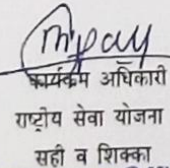 कार्यक्रम अधिकारी
राष्ट्रीय सेवा योजना
सही व शिक्का